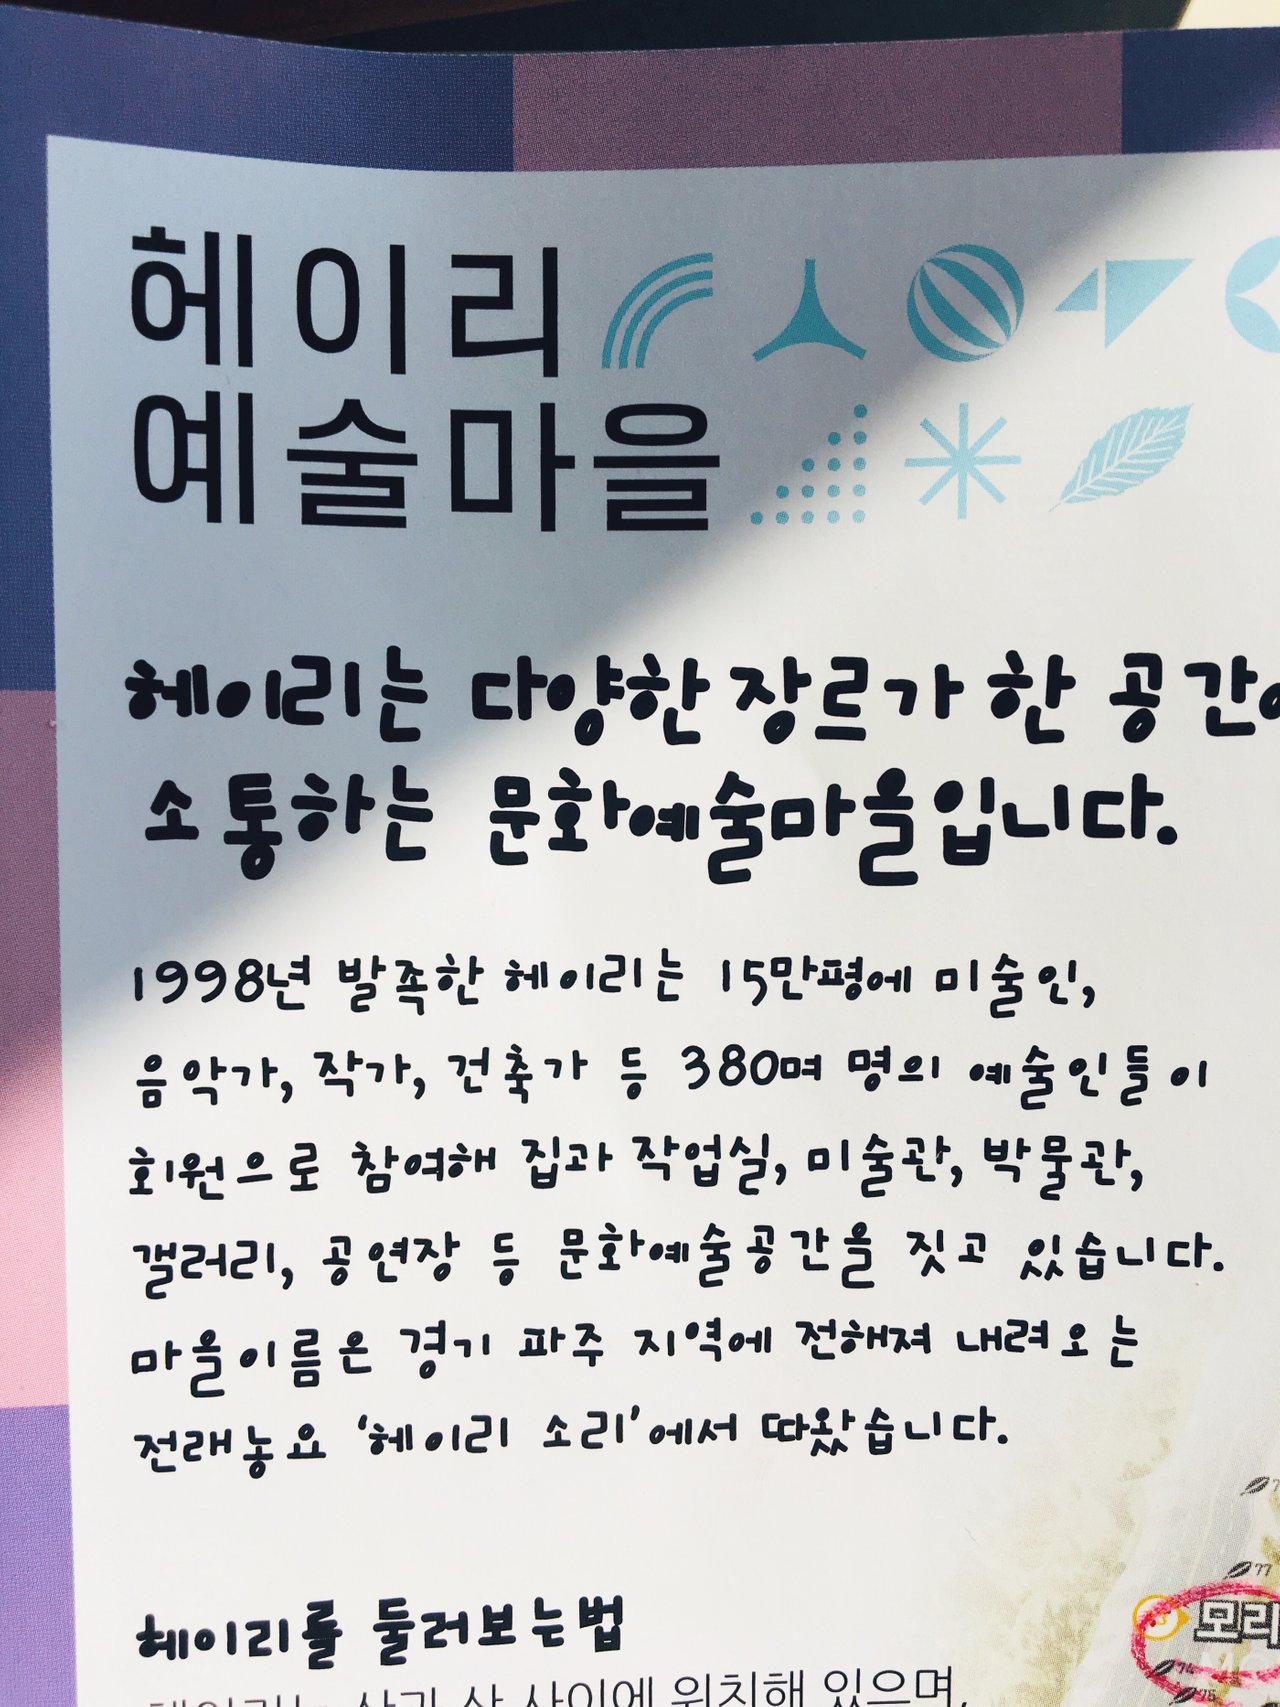 헤이리
예술마을
헤이리는 다양한 장르가 한 공간에
소통하는 문화예술마을입니다.
1998년 발족한 헤이리는 15만평에 미술인,
음악가, 작가, 건축가 등 380며 명의 예술인들이
회원으로 참여해 집과 작업실, 미술관, 박물관,
갤러리, 공연장 등 문화예술공간을 짓고 있습니다.
마을이름은 경기 파주 지역에 전해져 내려오는
전래농요 '헤이리 소리'에서 따왔습니다.
77
헤이리를 둘러보는법
모리
74
75
헤이리는 산과 산 사이에 위치해 있으며,